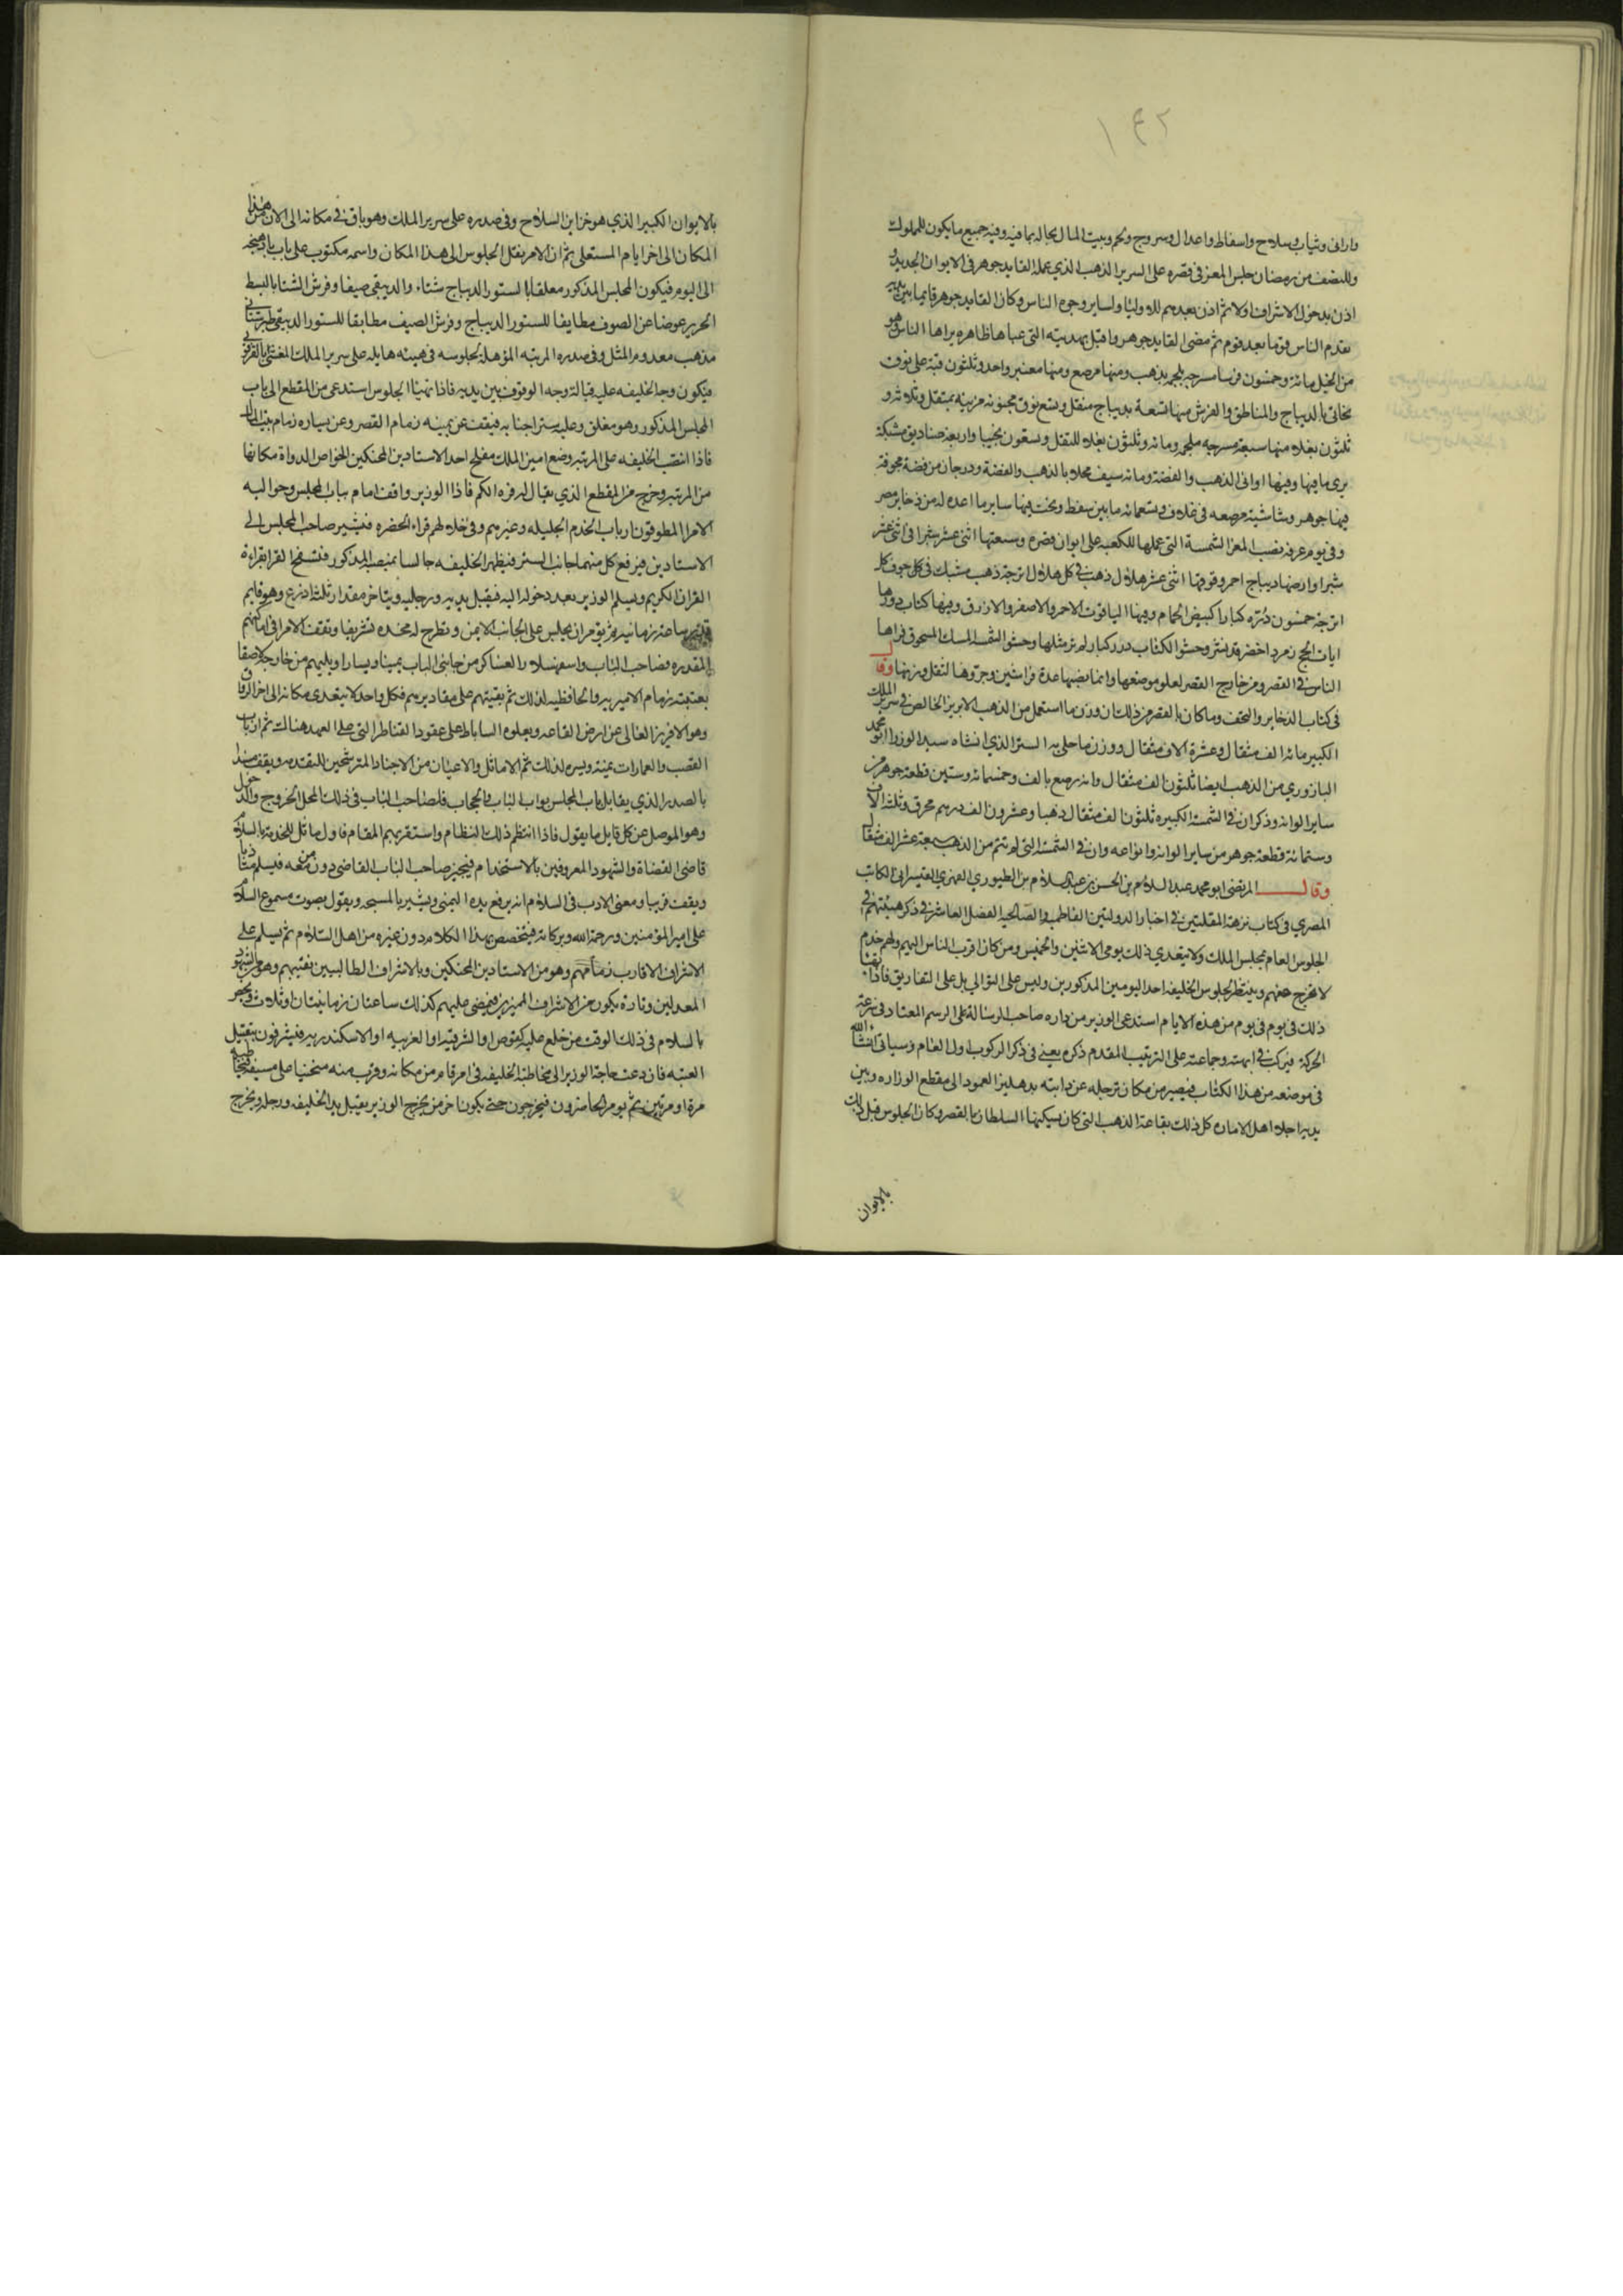 ١٤٢
واواني وثياب وسلاح واسفاط واعدال وسروج ولجم وبيت المال بحاله بما فيه وفيه جميع ما يكون للملوك
وللنصف من رمضان جلس المعز في قصره على السرير الذهب الذي عمله القايد جوهر في الايوان الجديد و
اذن بدخول الاشراف اولا ثم اذن بعدهم للاوليا ولساير وجوه الناس وكان القايد جوهر قايما بين يديه
يقدم الناس قوما بعد قوم ثم مضى القايد جوهر واقبل بهديته التي عباها ظاهره يراها الناس وهي
من الخيل مائة وخمسون فرسا مسرجه ملجمه بذهب ومنها مرصع ومنها معنبر واحد وثلثون قبة على نوق
بخاتي بالديباج والمناطق والفرش منها تسعة بديباج مثقل وتسع نوق مجنوبه مزينه بمثقل وثلاثه و
ثلثون بغله منها سبعة مسرجه ملجمه ومائه وثلثون بغله للنقل وتسعون نجيبا واربعة صناديق مشبكة
يرى ما فيها وفيها اواني الذهب والفضة ومائه سيف محلا بالذهب والفضة ودرجان من فضة مجوفة
فيها جوهر وشاشية مرصعه في غلاف وتسعمائه ما بين سفط وتخت فيها ساير ما اعده له من ذخاير مصر
وفي يوم عرفه نصب المعز الشمسة التي عملها للكعبه على ايوان قصره وسعتها اثنى عشر شبرا في اثنى عشر
شبرا وارضها ديباج احمر وقوفها اثنى عشر هلال ذهب في كل هلال اترجة ذهب مشبك في كل جوف كل
اترجة خمسون دره كبارا كبيض الحمام وفيها الياقوت الاحمر والاصفر والازرق وفيها كتاب دورها
ايات الحج زمرد اخضر قد نشر وحشو الكتاب درر كبار لم ير مثلها وحشو الشمسه المسك المسحوق فراها
الناس في القصر ومن خارج القصر لعلو موضعها وانما نصبها عدة فراشين وجروها لثقل وزنها وقال
في كتاب الذخاير والتحف وما كان بالقصر من ذلك ان وزن ما استعمل من الذهب الابريز الخالص في سرير الملك
الكبير مائه الف مثقال وعشرة الاف مثقال ووزن ما حلي به الستر الذي انشاه سيد الوزرا ابو محمد
البازوري من الذهب ايضا ثلثون الف مثقال وانه رصع بالف وخمسمائه وستين قطعة جوهر من
ساير الوانه وذكر ان في الشمسه الكبيره ثلثون الف مثقال ذهبا وعشرون الف درهم محرق وثلثه الاف
وستمائه قطعة جوهر من ساير الوانه وانواعه وان في الشمسه التي لم تتم من الذهب سبعة عشر الف مثقال
وقال المرتضى ابو محمد عبد السلام بن الحسن بن عبد السلام بن الطيوري الفهري القيسراني الكاتب
المصري في كتاب نزهة المقلتين في اخبار الدولتين الفاطميه والصالحيه الفصل العاشر في ذكر هيئتهم في
الجلوس العام بمجلس الملك ولا يتعدي ذلك يومي الاثنين والخميس ومن كان اقرب الناس اليهم ولهم خدم
لا تخرج عنهم وينتظر لجلوس الخليفه احد اليومين المذكورين وليس على التوالي بل على التفاريق فاذا تهيا
ذلك في يوم في يوم من هذه الايام استدعى الوزير من داره صاحب الرسالة على الرسم المعتاد في سرعة
الحركة فيركب في ابهته وجماعته على الترتيب المقدم ذكره يعني في ذكر الركوب اول العام وسياتي انشاء الله
في موضعه من هذا الكتاب فيصير من مكان ترجله عن دابته بدهليز العمود الى مقطع الوزاره وبين
يديه اجلا اهل الاماره كل ذلك بقاعة الذهب التي كان يسكنها السلطان بالقصر وكان الجلوس قبل ذلك
بالايوان
بالايوان الكبير الذي هو خزاين السلاح وفي صدره على سرير الملك وهو باق في مكانه الى الان من هذا
المكان الى اخر ايام المستعلى ثم ان الامر نقل الجلوس الى هذا المكان واسمه مكتوب على باب باذهنجه
الى اليوم فيكون المجلس المذكور معلقا بالستور الديباج شتاء والديبقى صيفا وفرش الشتا بالبسط
الحرير عوضا عن الصوف مطابقا للستور الديباج وفرش الصيف مطابقا للستور الديبقي طبرستاني
مذهب معدوم المثل وفي صدره المرتبه المؤهلة لجلوسه في هيئه هايله على سرير الملك المغشى بالقرقوبي
فيكون وجه الخليفه عليه قبالة وجه الوقوف بين يديه فاذا تهيئا الجلوس استدعى من المقطع الى باب
المجلس المذكور وهو مغلق وعليه ستر اجنابه فيقف عن يمينه زمام القصر وعن يساره زمام بيت المال
فاذا انتصب الخليفه على المرتبه وضع امين الملك مفلح احد الاستادين المحنكين الخواص الدواة مكانها
من المرتبه وخرج من المقطع الذي يقال له فرده الكم فاذا الوزير واقف امام باب المجلس وحواليه
الامرا المطوقون ارباب الخدم الجليله وغيرهم وفي خلالهم قراء الحضره فيشير صاحب المجلس الى
الاستادين فيرفع كل منهما جانب الستر فيظهر الخليفه جالسا بمنصبه المذكور فتستفتح القرا بقراءة
القران الكريم ويسلم الوزير بعد دخوله اليه فيقبل يديه ورجليه ويتاخر مقدار ثلثة اذرع وهو قايم
قدر ساعة زمانيه ثم يؤمر ان يجلس على الجانب الايمن وتطرح له مخده تشريفا وتقف الامرا في اماكنهم
المقدره فصاحب الباب واسفهسلار العساكر من جانبي الباب يمينا ويسارا ويليهم من خارجه لاصقا
بعتبته زمام الامريه والحافظيه كذلك ثم بقيتهم على مقاديرهم فكل واحد لا يتعدى مكانه الى اخر الرواق
وهو الافريز العالي عن ارض القاعه ويعلوه الساباط على عقود القناطر التي على العمد هناك ثم ارباب
القصب والعمارات يمنة ويسره كذلك ثم الاماثل والاعيان من الاجناد المترشحين للتقدمه ويقف مستندا
بالصدر الذي يقابل باب المجلس بواب الباب والحجاب فلصاحب الباب في ذلك المحل الخروج والدخول
وهو الموصل عن كل قايل ما يقول فاذا انتظم ذلك النظام واستقر بهم المقام فاول ماثل للخدمة بالسلام
قاضي القضاة والشهود المعروفين بالاستخدام فيجيز صاحب الباب القاضي دون من معه فيسلم متادبا
ويقف قريبا ومعنى الادب في السلام انه يرفع يده اليمنى ويشير بالمسبحه ويقول بصوت مسموع السلام
على امير المؤمنين ورحمة الله وبركاته فيتخصص بهذا الكلام دون غيره من اهل السلام ثم يسلم على
الاشراف الاقارب زمامهم وهو من الاستادين المحنكين وبالاشراف الطالبيين نقيبهم وهو من الشهود
المعدلين وتارة يكون من الاشراف المميزين فيمضى عليهم كذلك ساعتان زمانيتان او ثلاث ويخص
بالسلام في ذلك الوقت من خلع عليه لقوص او الشرقيه او الغربيه او الاسكندريه فيشرفون بتقبيل
العتبه فان دعت حاجة الوزير الى مخاطبة الخليفه في امر قام من مكانه وقرب منه منحنيا على سيفه فيخاطبه
مرة او مرتين ثم يومر الحاضرون فيخرجون حتى يكون اخر من يخرج الوزير بعد تقبيل يد الخليفه ورجله ويخرج